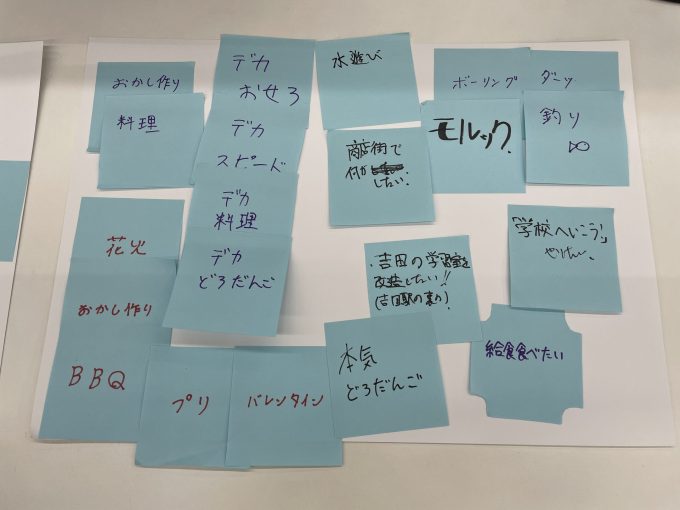 おかし作り
料理
デカ
おせろ
デカ
スピード
デカ
料理
デカ
どろだんご
水遊び
商店街で
何か
したい.
ボーリング
ダーツ
モルック.
釣り
花火
おかし作り
BBQ
プリ
バレンタイン
・吉田の学習室を
改造したい!!
(吉田駅の裏の)
本気
どろだんご
「学校へいこう!」
やりたい.
給食食べたい